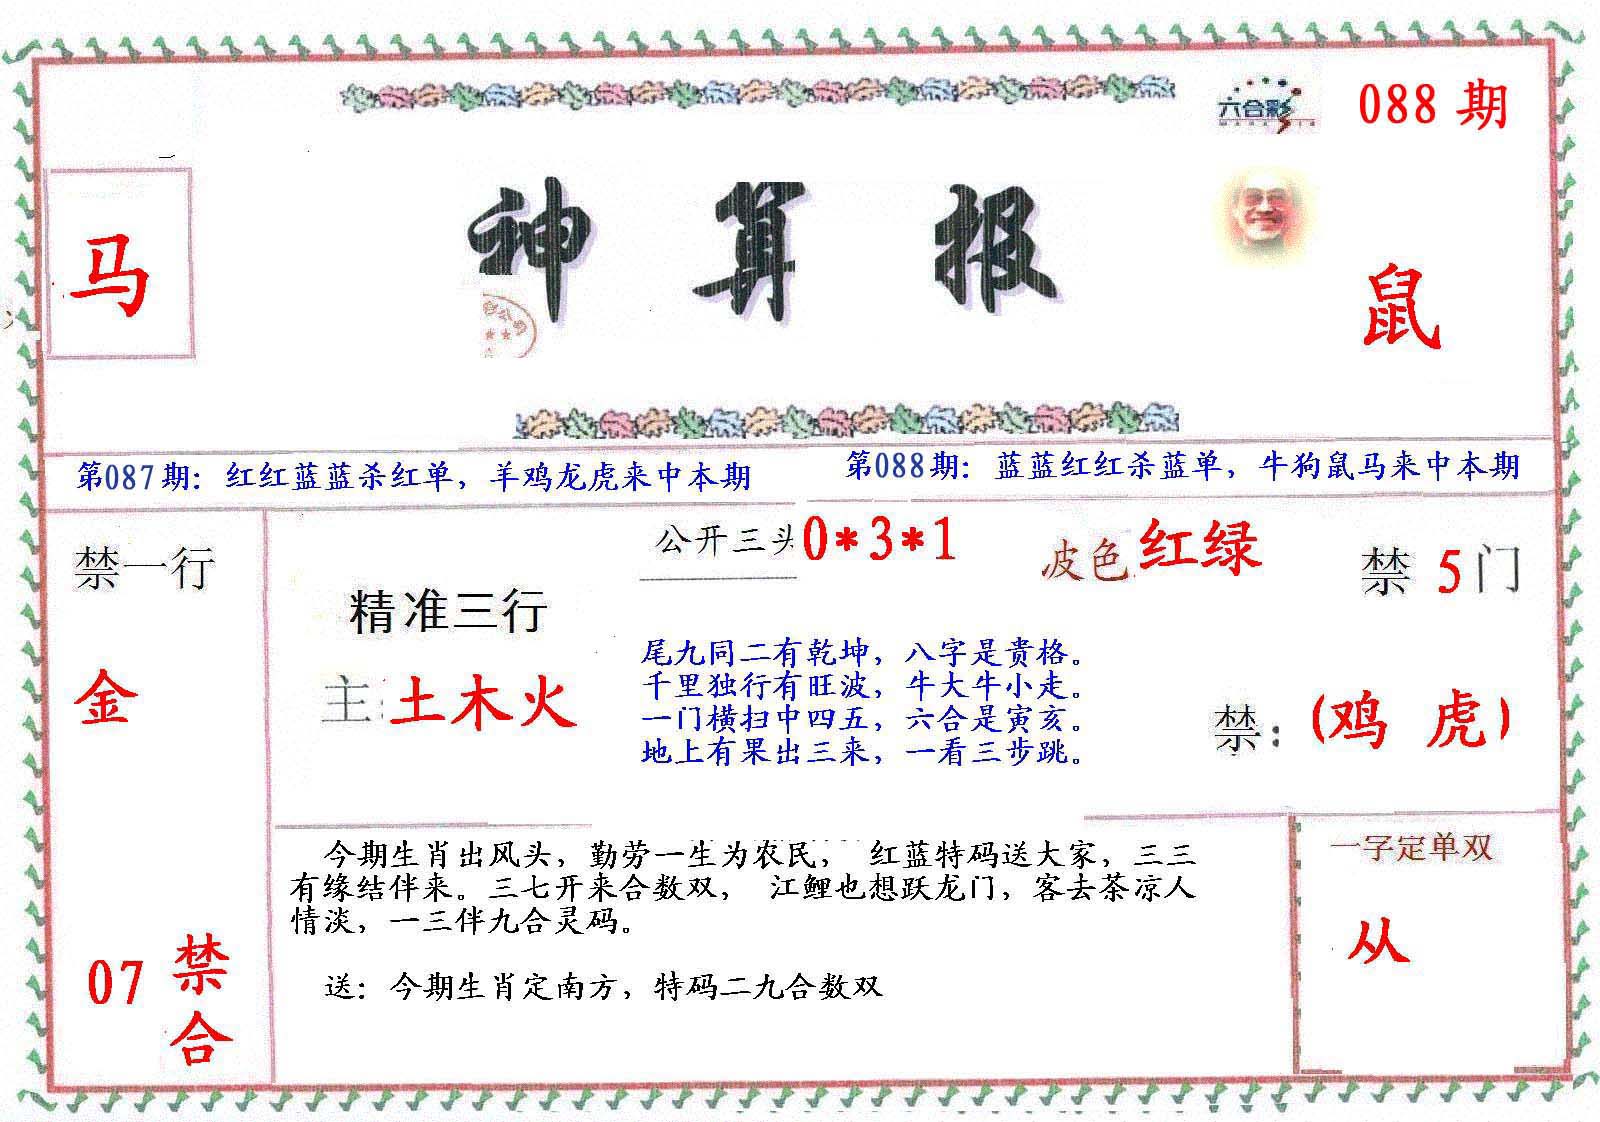 六合彩
088 期
马
神算报
鼠
第087期：红红蓝蓝杀红单，羊鸡龙虎来中本期
第088期：蓝蓝红红杀蓝单，牛狗鼠马来中本期
禁一行
金
07 禁合
精准三行
主：土木火
公开三头 0*3*1
波色 红绿
禁 5 门
尾九同二有乾坤，八字是贵格。
千里独行有旺波，牛大牛小走。
一门横扫中四五，六合是寅亥。
地上有果出三来，一看三步跳。
禁：(鸡 虎)
今期生肖出风头，勤劳一生为农民， 红蓝特码送大家，三三
有缘结伴来。三七开来合数双， 江鲤也想跃龙门，客去茶凉人
情淡，一三伴九合灵码。
送：今期生肖定南方，特码二九合数双
一字定单双
从